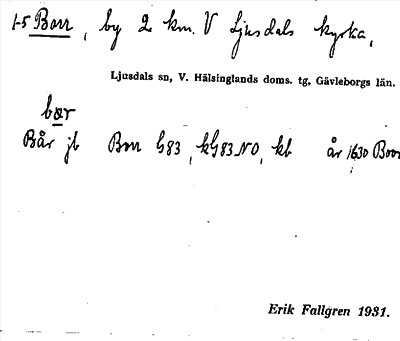 1-5 Borr, by 2 km. V Ljusdals kyrka,
Ljusdals sn, V. Hälsinglands doms. tg, Gävleborgs län.
bær
Bår jb Borr G83, kG83NO, kb år 1630 Boor
Erik Fallgren 1931.